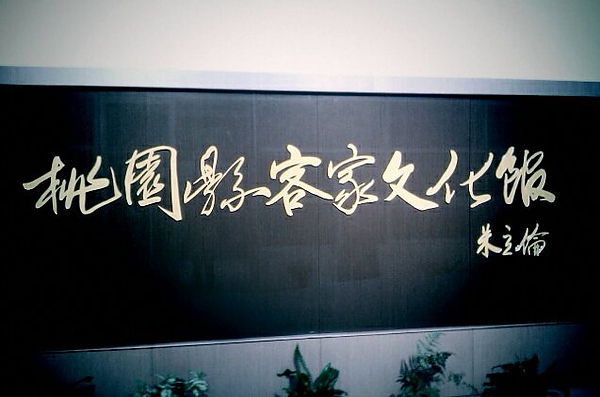 桃園縣客家文化館
朱立倫